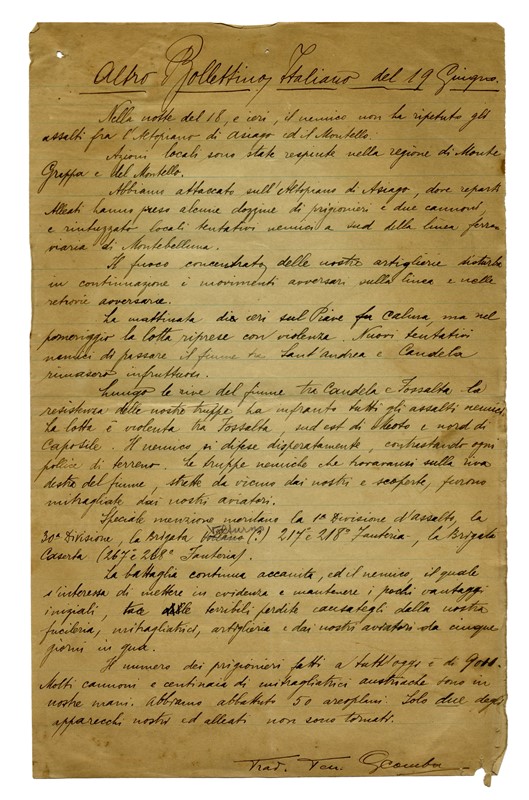 Altro Bollettino Italiano del 19 Giugno.
Nella notte del 18, e ieri, il nemico non ha ripetuto gli
assalti fra l'Altopiano di Asiago ed il Montello.
Azioni locali sono state respinte nella regione di Monte
Grappa e del Montello.
Abbiamo attaccato sull'Altopiano di Asiago, dove reparti
Alleati hanno preso alcune dozzine di prigionieri e due cannoni
e rintuzzato locali tentativi nemici a sud della linea ferro
viaria di Montebelluna.
Il fuoco concentrato delle nostre artiglierie disturba
in continuazione i movimenti avversari sulla linea e nelle
retrovie avversarie.
La mattinata di ieri sul Piave fu calma, ma nel
pomeriggio la lotta riprese con violenza. Nuovi tentativi
nemici di passare il fiume tra Sant'Andrea e Candela
rimasero infruttuosi.
Lungo le rive del fiume tra Candela e Fossalta la
resistenza delle nostre truppe ha infranto tutti gli assalti nemici.
La lotta è violenta tra Fossalta, sud est di Meolo e nord di
Caposile. Il nemico si difese disperatamente, contrastando ogni
pollice di terreno. Le truppe nemiche che trovavansi sulla riva
destra del fiume, strette da vicino dai nostri e scoperte, furono
mitragliate dai nostri aviatori.
Speciale menzione meritano la 1ª Divisione d'assalto, la
30ª Divisione, la Brigata Volturno (?) 217 e 218ª Fanteria, la Brigata
Caserta (267 e 268ª Fanteria).
La battaglia continua accanita, ed il nemico, il quale
s'interessa di mettere in evidenza e mantenere i pochi vantaggi
iniziali, terribili perdite causategli dalla nostra
fucileria, mitragliatrici, artiglieria e dai nostri aviatori da cinque
giorni in qua.
Il numero dei prigionieri fatti a tutt'oggi è di
Molti cannoni e centinaia di mitragliatrici austriache sono in
nostre mani. Abbiamo abbattuto 50 areoplani. Solo due degli
apparecchi nostri ed alleati non sono tornati.
Trad. Ten.